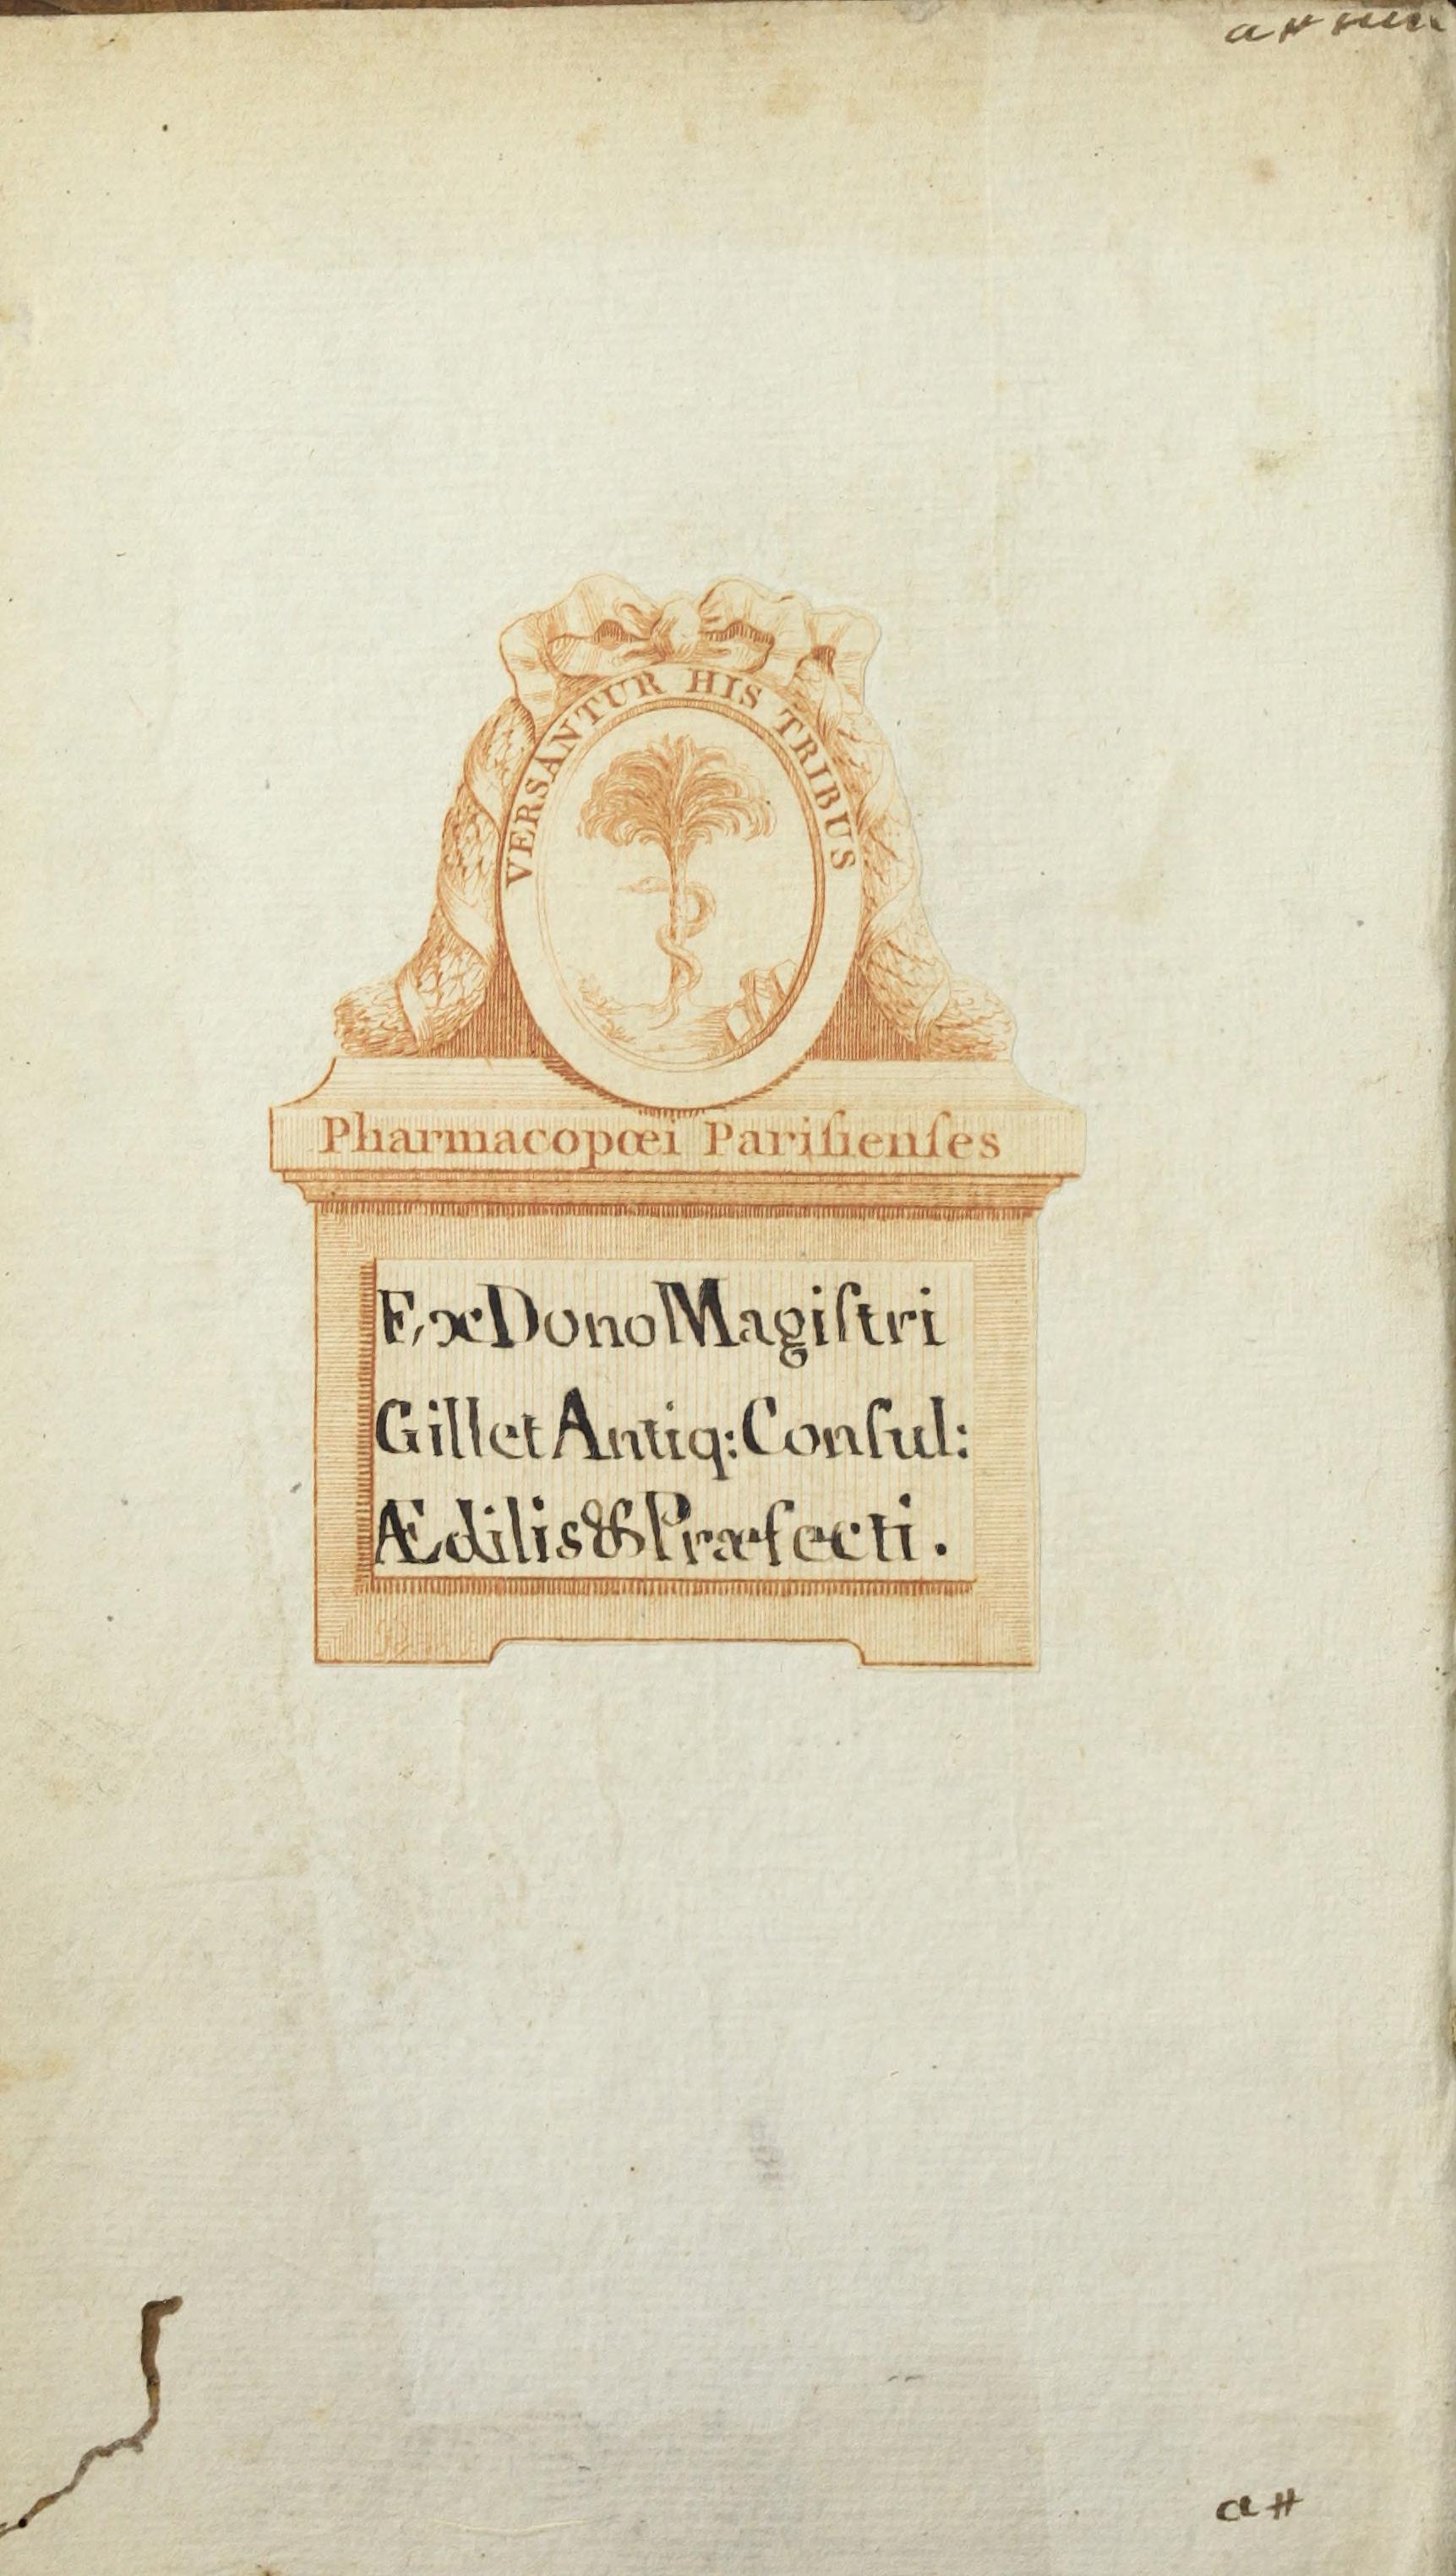 VERSANTUR HIS TRIBUS
Pharmacopœi Pariſienſes
Ex Dono Magiſtri
Gillet Antiq: Conſul:
Ædilis & Præfecti.
a#